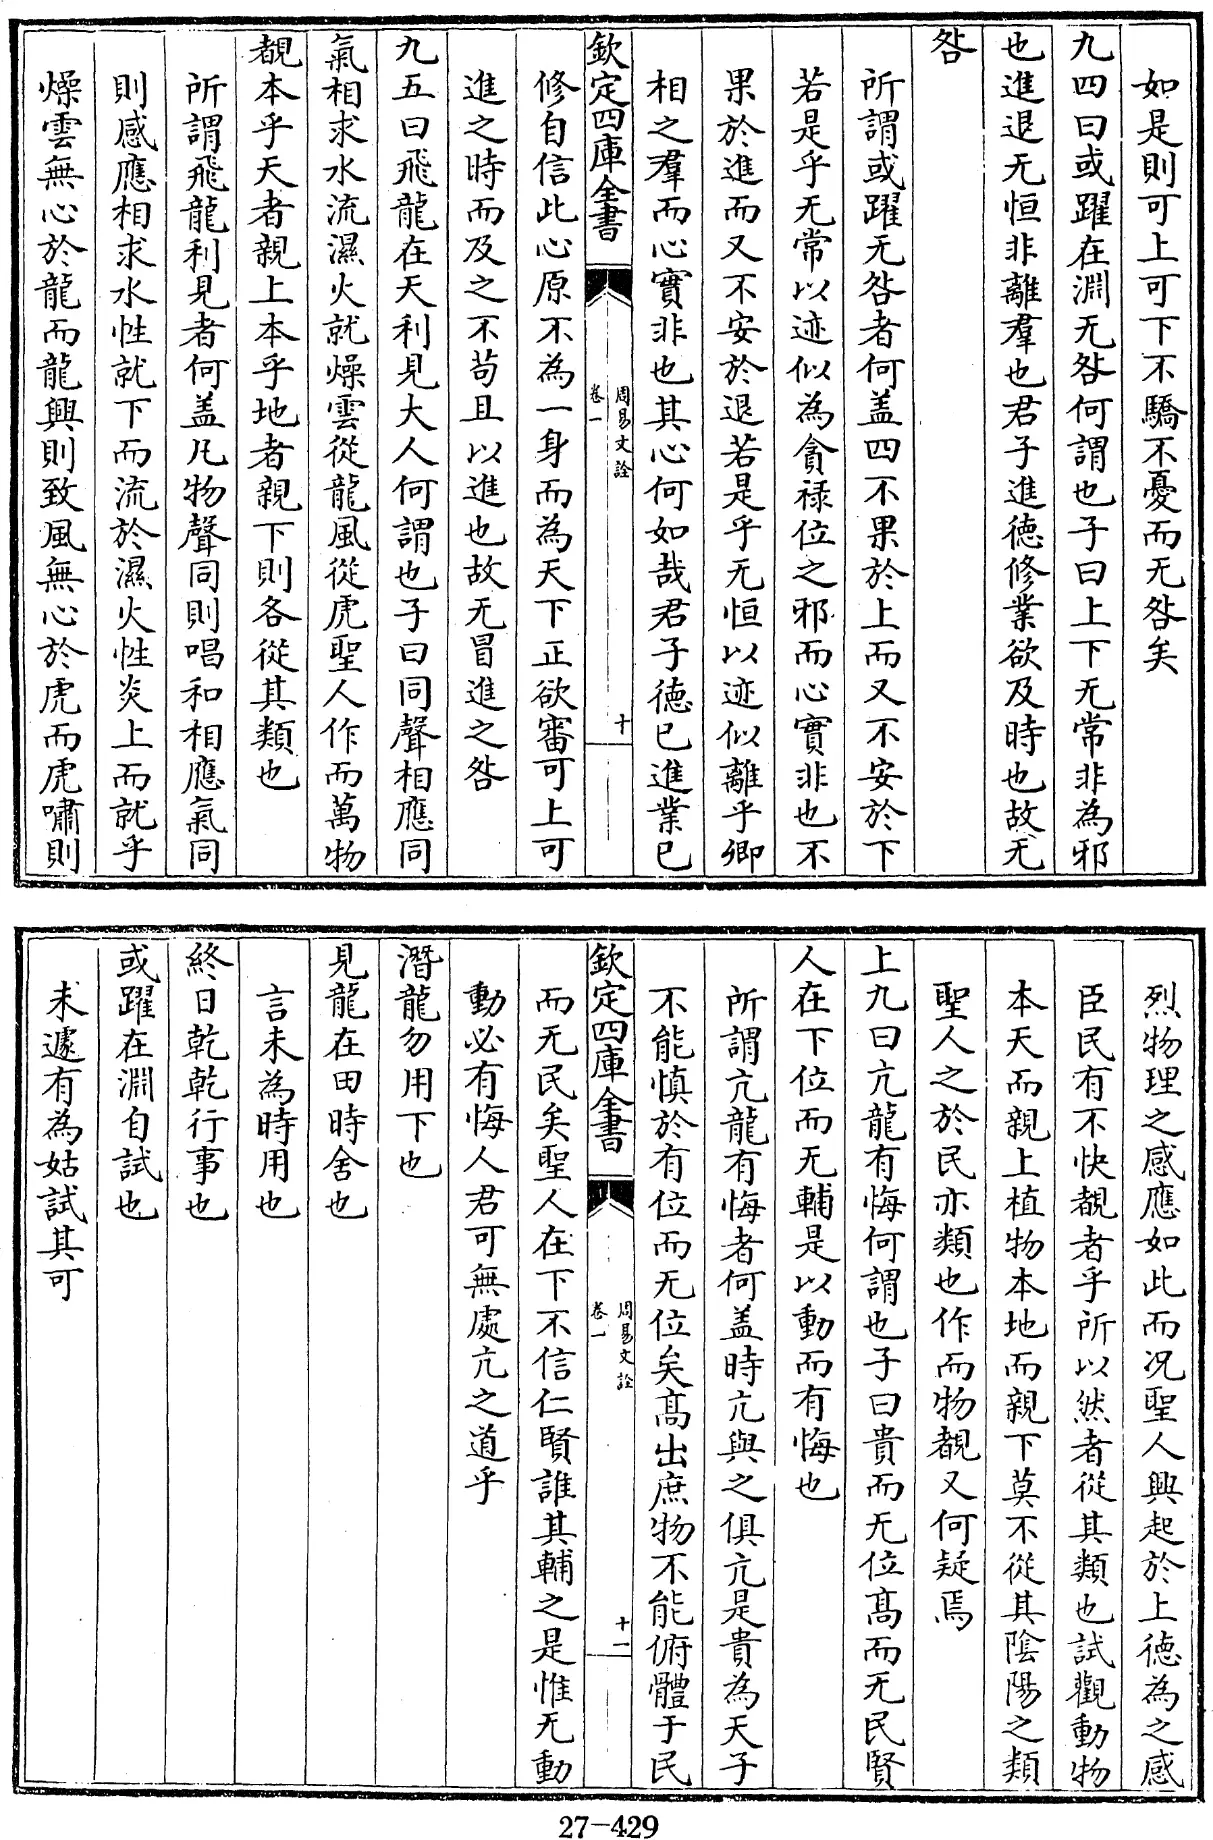 如是則可上可下不驕不憂而无咎矣
九四曰或躍在淵无咎何謂也子曰上下无常非為邪
也進退无恒非離羣也君子進德修業欲及時也故无
咎
所謂或躍无咎者何盖四不果於上而又不安於下
若是乎无常以迹似為貪祿位之邪而心實非也不
果於進而又不安於退若是乎无恒以迹似離乎卿
相之羣而心實非也其心何如哉君子德已進業已
欽定四庫全書
周易文詮
卷一
十
修自信此心原不為一身而為天下正欲審可上可
進之時而及之不苟且以進也故无冒進之咎
九五曰飛龍在天利見大人何謂也子曰同聲相應同
氣相求水流濕火就燥雲從龍風從虎聖人作而萬物
覩本乎天者親上本乎地者親下則各從其類也
所謂飛龍利見者何盖凡物聲同則唱和相應氣同
則感應相求水性就下而流於濕火性炎上而就乎
燥雲無心於龍而龍興則致風無心於虎而虎嘯則
烈物理之感應如此而况聖人興起於上德為之感
臣民有不快覩者乎所以然者從其類也試觀動物
本天而親上植物本地而親下莫不從其陰陽之類
聖人之於民亦類也作而物覩又何疑焉
上九曰亢龍有悔何謂也子曰貴而无位高而无民賢
人在下位而无輔是以動而有悔也
所謂亢龍有悔者何盖時亢與之俱亢是貴為天子
不能慎於有位而无位矣高出庶物不能俯體于民
欽定四庫全書
周易文詮
卷一
十一
而无民矣聖人在下不信仁賢誰其輔之是惟无動
動必有悔人君可無處亢之道乎
潛龍勿用下也
見龍在田時舍也
言未為時用也
終日乾乾行事也
或躍在淵自試也
未遽有為姑試其可
27-429